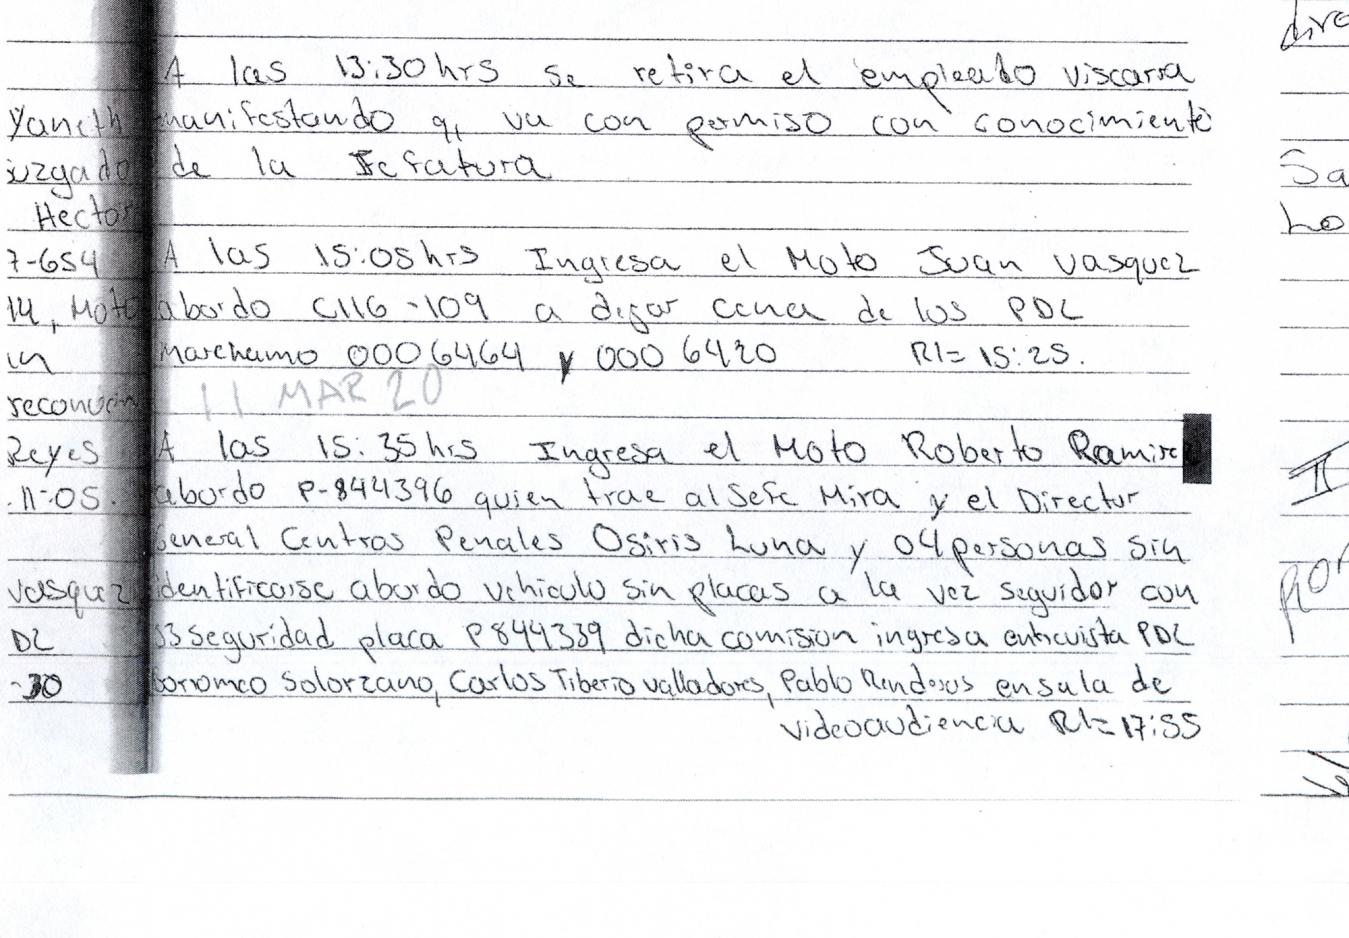 A las 13:30 hrs se retira el empleado viscarra
manifestando q, va con permiso con conocimiento
de la Jefatura
A las 15:05 hrs Ingresa el Moto Juan vasquez
abordo C116-109 a dejar cena de los PDL
Marchamo 0006464 y 0006420 R1= 15:25.
11 MAR 20
A las 15:35 hrs Ingresa el Moto Roberto Ramire
abordo P-844396 quien trae al Jefe Mira y el Director
General Centros Penales Osiris Luna y 04 personas sin
identificarse abordo vehiculo sin placas a la vez seguidor con
03 seguridad placa P844339 dicha comision ingresa entrevista PDL
boromeo Solorzano, Carlos Tiberio valladares, Pablo en sala de
videoaudiencia R1= 17:55
Yaneth
juzgado
Hector
7-654
14, Moto
un
reconocim
Reyes
11:05.
vasquez
DL
-30
dire
Sa
Lo
II
por